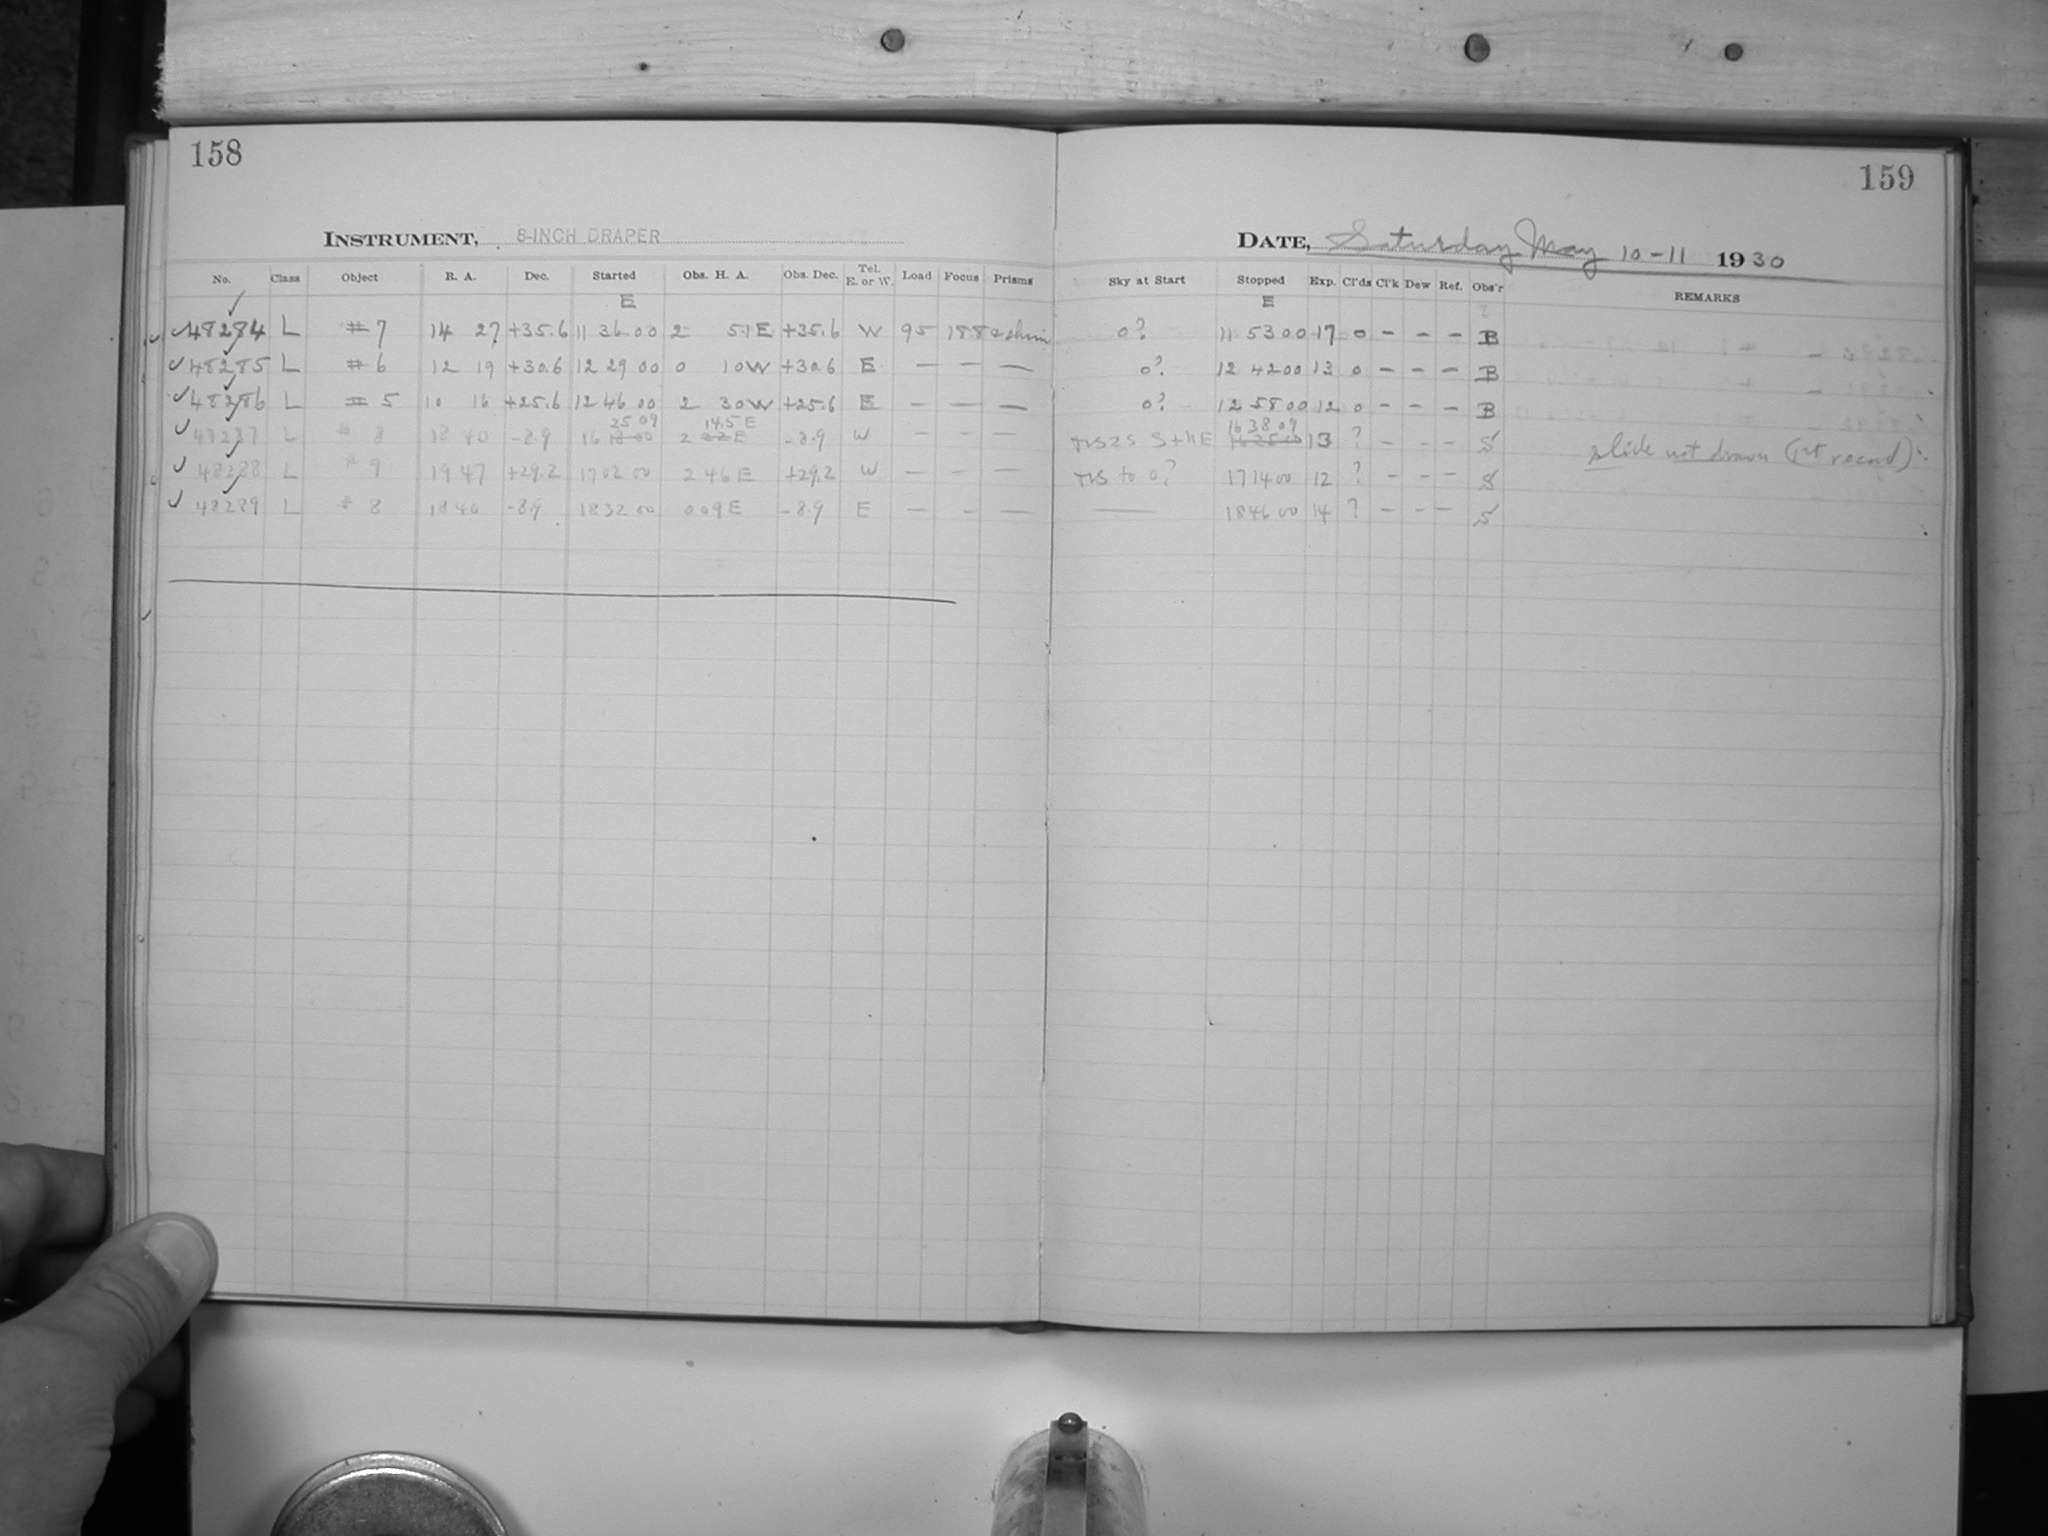 158
159
INSTRUMENT, 8-INCH DRAPER
DATE, Saturday May 10-11 1930
No. Class Object R. A. Dec. Started Obs. H. A. Obs. Dec. Tel. E. or W. Load Focus Prisms Sky at Start Stopped Exp. Cl'ds Cl'k Dew Ref. Obs'r REMARKS
E E
48284 L #7 14 27 +35.6 11 36 00 2 51E +35.6 W 95 188 0? 11 53 00 17 0 - - - B
48285 L #6 12 19 +30.6 12 29 00 0 10W +30.6 E — — — 0? 12 42 00 13 0 - - - B
48286 L #5 10 16 +25.6 12 46 00 2 30W +25.6 E — — — 0? 12 58 00 12 0 - - - B
25 09 14.5 E 16 38 09
48287 L #8 18 40 -8.9 16 2 E -8.9 W — — — 13 ? - - - S slide not drawn (1st record)
48288 L #9 19 47 +29.2 17 02 00 2 46 E +29.2 W — — — to 0? 17 14 00 12 ? - - - S
48289 L #8 18 40 -8.9 18 32 00 0 09 E -8.9 E — - — — 18 46 00 14 ? - - - S